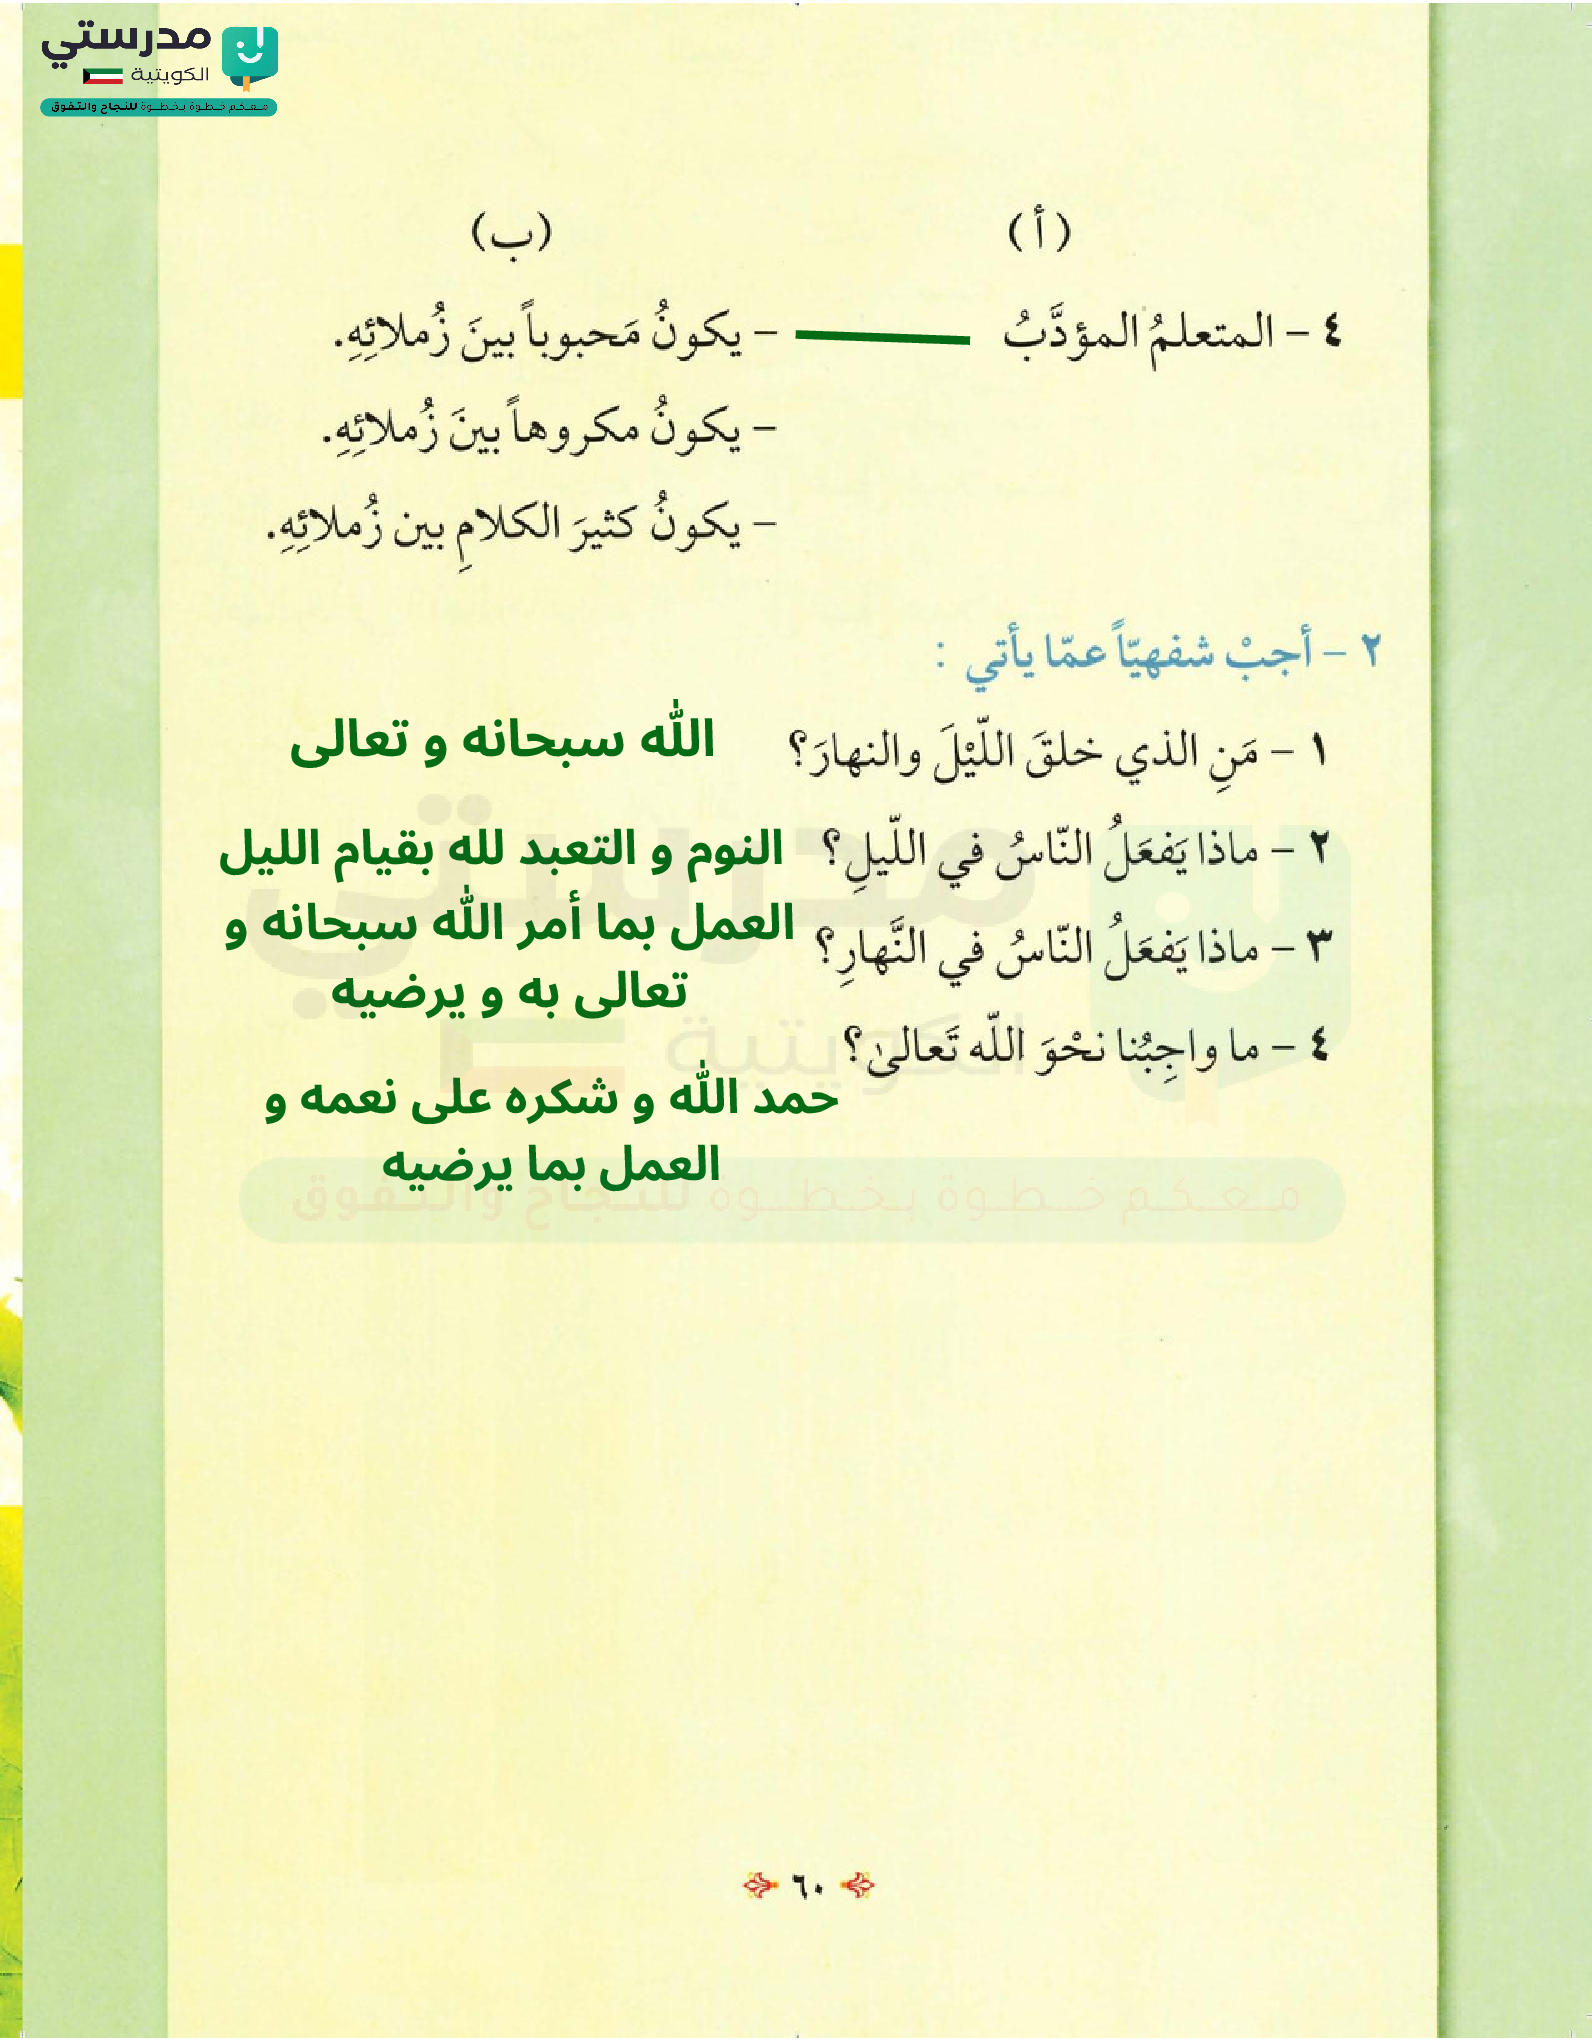 مدرستي
الكويتية
معكم خطوة بخطوة للنجاح والتفوق
(أ) (ب)
٤ - المتعلمُ المؤدَّبُ - يكونُ مَحبوباً بينَ زُملائِهِ.
- يكونُ مكروهاً بينَ زُملائِهِ.
- يكونُ كثيرَ الكلامِ بين زُملائِهِ.
٢ - أجبْ شفهيّاً عمّا يأتي :
١ - مَنِ الذي خلقَ اللّيْلَ والنهارَ؟ الله سبحانه و تعالى
٢ - ماذا يَفعَلُ النّاسُ في اللّيلِ؟ النوم و التعبد لله بقيام الليل
٣ - ماذا يَفعَلُ النّاسُ في النَّهارِ؟ العمل بما أمر الله سبحانه و
تعالى به و يرضيه
٤ - ما واجِبُنا نحْوَ اللّه تَعالىٰ؟
حمد الله و شكره على نعمه و
العمل بما يرضيه
مدرستي
الكويتية
معكم خطوة بخطوة للنجاح والتفوق
٦٠